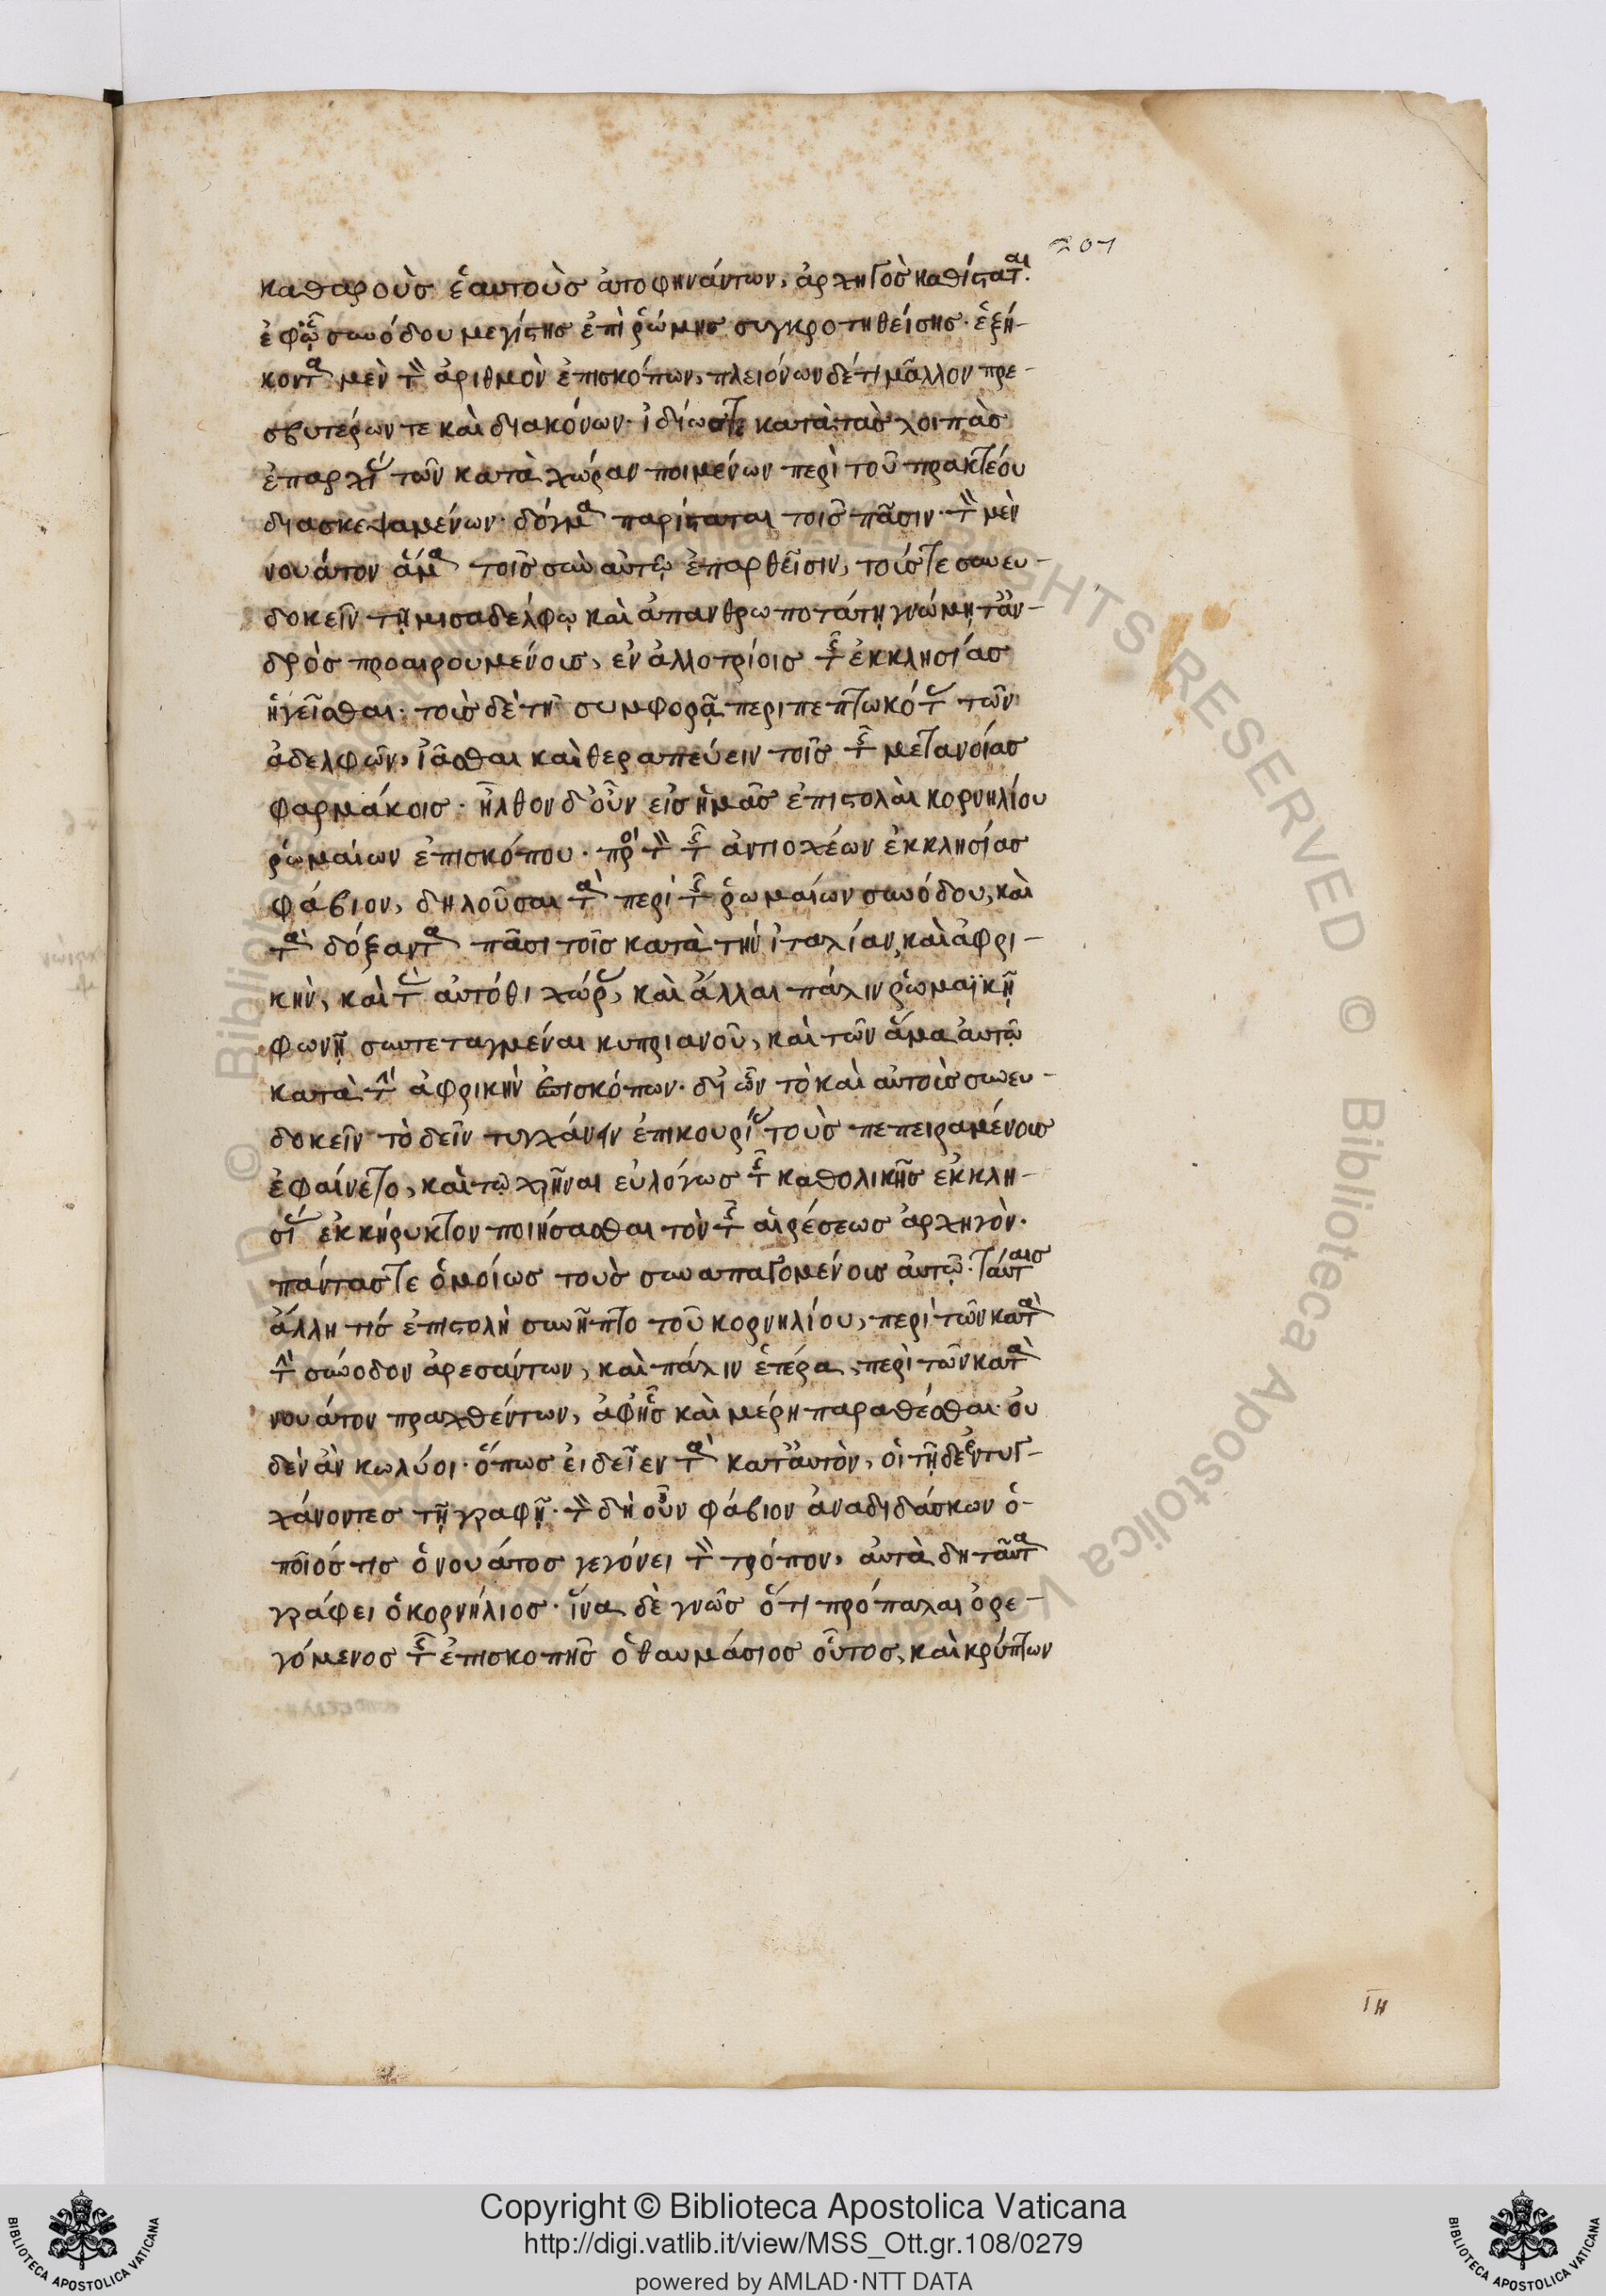 207
καθαροὺς ἑαυτοὺς ἀποφηνάντων, ἀρχηγὸς καθίσταται.
ἐφ ᾧ συνόδου μεγίστης ἐπὶ ῥώμης συγκροτηθείσης· ἑξή-
κοντα μὲν τὸν ἀριθμὸν ἐπισκόπων, πλειόνων δέ τι μᾶλλον πρε-
σβυτέρων τε καὶ διακόνων· ἰδίως τε κατὰ τὰς λοιπὰς
ἐπαρχίας τῶν κατὰ χώραν ποιμένων περὶ τοῦ πρακτέου
διασκεψαμένων· δόγμα παρίσταται τοῖς πᾶσιν· τὸν μὲν
νουάτον ἅμα τοῖς σὺν αὐτῷ ἐπαρθεῖσιν, τούς τε συνευ-
δοκεῖν τῇ μισαδέλφῳ καὶ ἀπανθρωποτάτῃ γνώμῃ τἀν-
δρὸς προαιρουμένους, ἐν ἀλλοτρίοις τῆς ἐκκλησίας
ἡγεῖσθαι· τοὺς δὲ τῇ συμφορᾷ περιπεπτωκότας τῶν
ἀδελφῶν, ἰᾶσθαι καὶ θεραπεύειν τοῖς τῆς μετανοίας
φαρμάκοις· ἦλθον δ' οὖν εἰς ἡμᾶς ἐπιστολαὶ κορνηλίου
ῥωμαίων ἐπισκόπου· πρὸς τὸν τῆς ἀντιοχέων ἐκκλησίας
φάβιον, δηλοῦσαι τὰ περὶ τῆς ῥωμαίων συνόδου, καὶ
τὰ δόξαντα πᾶσι τοῖς κατὰ τὴν ἰταλίαν, καὶ ἀφρι-
κὴν, καὶ τὰς αὐτόθι χώρας, καὶ ἄλλαι πάλιν ῥωμαϊκῇ
φωνῇ συντεταγμέναι κυπριανοῦ, καὶ τῶν ἅμα αὐτῷ
κατὰ τὴν ἀφρικὴν ἐπισκόπων· δι' ὧν τὸ καὶ αὐτοὺς συνευ-
δοκεῖν τὸ δεῖν τυγχάνειν ἐπικουρίας τοὺς πεπειραμένους
ἐφαίνετο, καὶ τῷ χρῆναι εὐλόγως τῆς καθολικῆς ἐκκλη-
σίας ἐκκήρυκτον ποιήσασθαι τὸν τῆς αἱρέσεως ἀρχηγὸν·
πάντας τε ὁμοίως τοὺς συναπαγομένους αὐτῷ· ταύταις
ἄλλη τις ἐπιστολὴ συνῆπτο τοῦ κορνηλίου, περὶ τῶν κατὰ
τὴν σύνοδον ἀρεσάντων, καὶ πάλιν ἑτέρα, περὶ τῶν κατὰ
νουάτον πραχθέντων, ἀφ' ἧς καὶ μέρη παραθέσθαι οὐ
δὲν ἂν κωλύοι· ὅπως εἰδεῖεν τὰ κατ' αὐτὸν, οἱ τῇδε ἐντυγ-
χάνοντες τῇ γραφῇ· τὸν δὴ οὖν φάβιον ἀναδιδάσκων ὁ-
ποῖός τις ὁ νουάτος γεγόνει τὸν τρόπον, αὐτὰ δὴ ταῦτα
γράφει ὁ κορνήλιος· ἵνα δὲ γνῶς ὅτι πρόπαλαι ὀρε-
γόμενος τῆς ἐπισκοπῆς ὁ θαυμάσιος οὗτος, καὶ κρύπτων
ιη
Copyright © Biblioteca Apostolica Vaticana
http://digi.vatlib.it/view/MSS_Ott.gr.108/0279
powered by AMLAD·NTT DATA
BIBLIOTECA APOSTOLICA VATICANA
BIBLIOTECA APOSTOLICA VATICANA